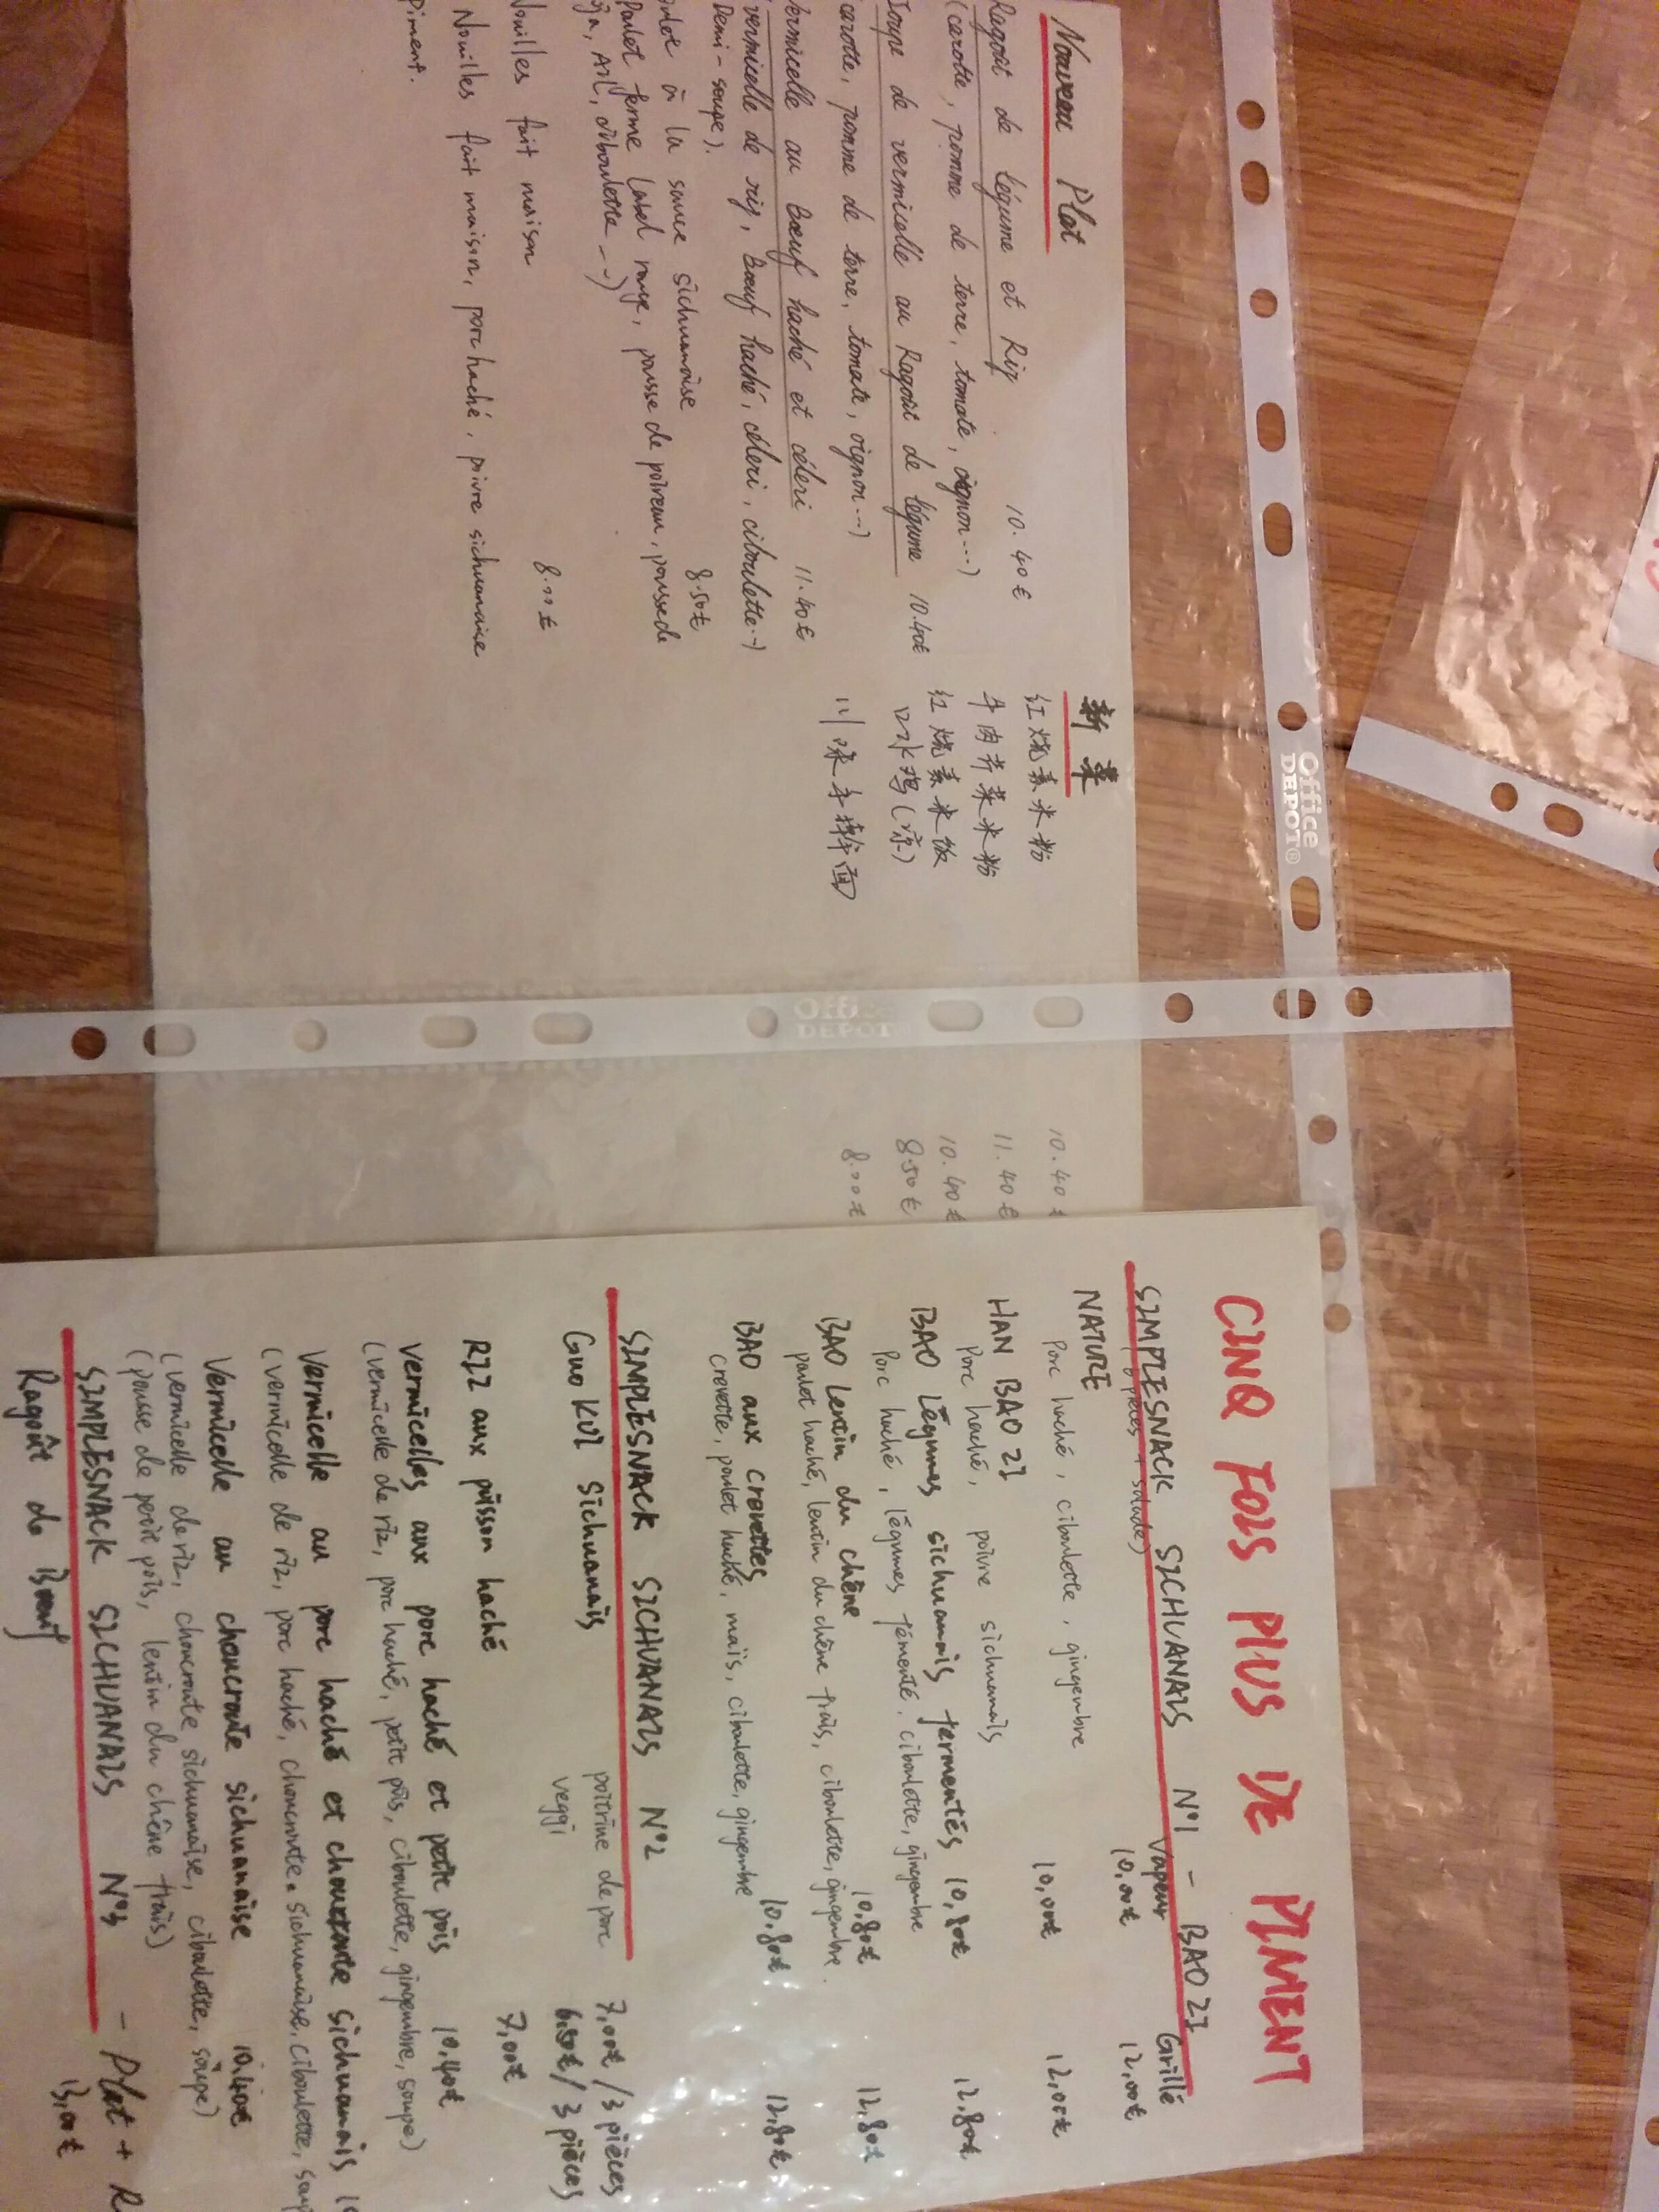 Nouveau Plat
Ragoût de légume et Riz 10.40€
(carotte, pomme de terre, tomate, oignon...)
Soupe de vermicelle au Ragoût de légume 10.40€
carotte, pomme de terre, tomate, oignon...)
vermicelle au Bœuf haché et céleri 11.40€
vermicelle de riz, Bœuf haché, céleri, ciboulette..)
Demi-soupe).
à la sauce sichuanaise 8.50€
Poulet ferme Label rouge, pousse de poireau, pousse de
soja, AIL, ciboulette...)
Nouilles fait maison 8.00€
Nouilles fait maison, porc haché, poivre sichuanaise
Piment.
新菜
红烧素米粉 10.40€
牛肉芹菜米粉 11.40€
红烧素米饭 10.40€
口水鸡(凉) 8.50€
川味手擀面 8.00€
Office
DEPOT®
Office
DEPOT®
CINQ FOIS PLUS DE PIMENT
SIMPLESNACK SICHUANAIS N°1 - BAO ZI
pièces + salade) Vapeur Grillé
NATURE 10,00€ 12,00€
Porc haché, ciboulette, gingembre
HAN BAO ZI 10,00€ 12,00€
Porc haché, poivre sichuanais
BAO Légumes sichuanais fermentés 10,80€ 12,80€
Porc haché, légumes fémenté, ciboulette, gingembre
BAO Lentin du chêne 10,80€ 12,80€
poulet haché, lentin du chêne frais, ciboulette, gingembre.
BAO aux crevettes 10,80€ 12,80€
crevette, poulet haché, maïs, ciboulette, gingembre
SIMPLESNACK SICHUANAIS N°2
Guo KUI Sichuanais poitrine de porc 7,00€/3 pièces
veggi 6,50€/3 pièces
RIZ aux poisson haché 7,00€
Vermicelles aux porc haché et petit pois 10,40€
(vermicelle de riz, porc haché, petit pois, ciboulette, gingembre, soupe)
Vermicelle au porc haché et choucroute sichuanais
(vermicelle de riz, porc haché, choucroute sichuanaise, ciboulette,
Vermicelle au choucroute sichuanaise 10,40€
(vermicelle de riz, choucroute sichuanaise, ciboulette, soupe)
(pousse de petit pois, lentin du chêne frais)
SIMPLESNACK SICHUANAIS N°3 - Plat +
Ragoût de Bœuf 13,00€